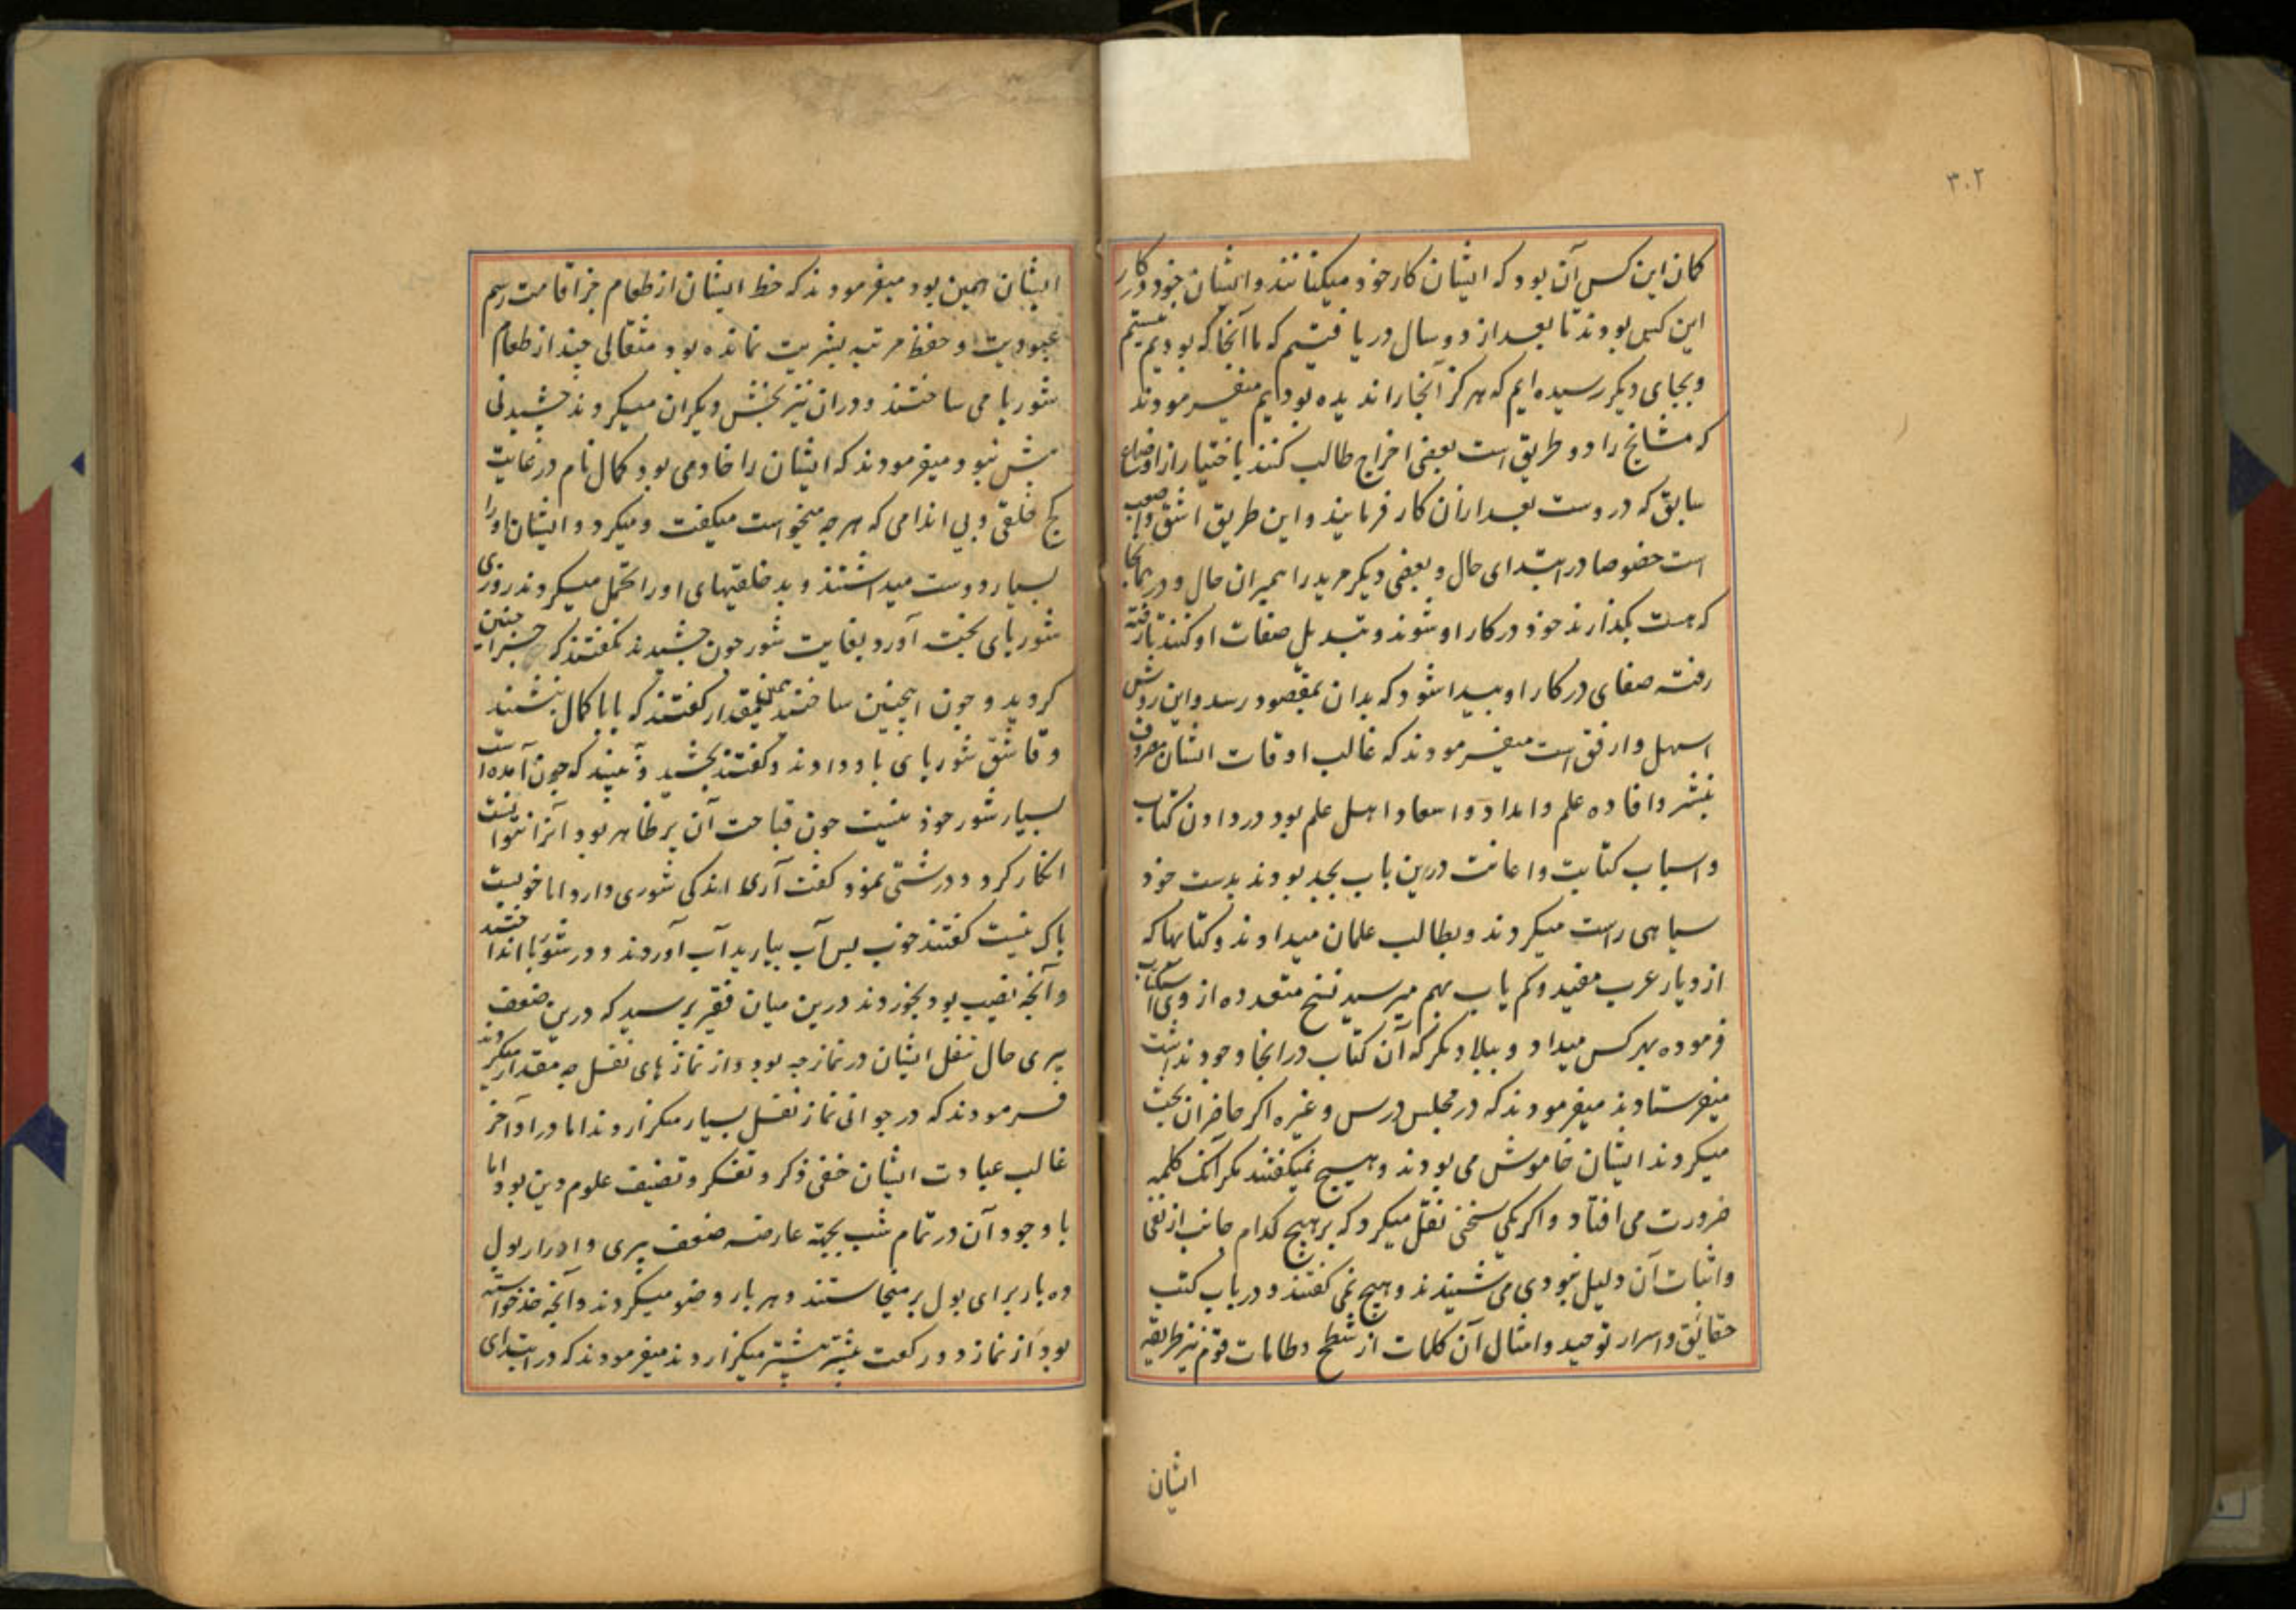 ۳۰۲
کمان این کس آن بود که ایشان کار خود میکنانند و ایشان خود در کار
این کس بودند تا بعد از دو سال دریافتیم که ما آنجا که بودیم نیستیم
و بجای دیگر رسیده ایم که هرگز آنجا را ندیده بودیم میفرمودند
که مشایخ را دو طریق است بعضی اخراج طالب کنند باختیار از اوضاع
سابق که دروست بعد ازان کار فرمایند و این طریق اشق و اصعب
است خصوصا در ابتدای حال و بعضی دیگر مرید را همبران حال و در همانجا
که هست بگذارند خود در کار او شوند و تبدیل صفات او کنند تا رفته
رفته صفای در کار او پیدا شود که بدان بمقصود رسد و این روش
اسهل و ارفق است میفرمودند که غالب اوقات ایشان مصروف
بنشر و افاده علم و امداد و اسعاد اهل علم بود در دادن کتاب
و اسباب کتابت و اعانت درین باب بجد بودند بدست خود
سیاهی راست میکردند و بطالب علمان میدادند و کتابها که
از دیار عرب مفید و کم یاب بهم میرسید نسخ متعدده از وی
فرموده بهر کس میداد و ببلاد دیگر که آن کتاب در انجا وجود نداشت
میفرستادند میفرمودند که در مجلس درس و غیره اگر حاضران بحث
میکردند ایشان خاموش می بودند و هیچ نمیگفتند مگر آنک کلمه
ضرورت می افتاد و اگر یکی سخنی نقل میکرد که بر هیچ کدام جانب از نفی
و اثبات آن دلیل نبودی می شنیدند و هیچ نمی گفتند و در باب کتب
حقایق و اسرار توحید و امثال آن کلمات از شطح و طامات قوم نیز طریقه
ایشان
ایشان همین بود میفرمودند که حظ ایشان از طعام جز اقامت رسم
عبودیت و حفظ مرتبه بشریت نمانده بود مثقالی چند از طعام
شوربا می ساختند و دران نیز بخش دیگران میکردند چشیدنی
بیش نبود میفرمودند که ایشان را خادمی بود کمال نام در غایت
کج خلقی و بی اندامی که هر چه میخواست میگفت و میکرد و ایشان او را
بسیار دوست میداشتند و بد خلقیهای او را تحمل میکردند روزی
شوربای پخت آورد بغایت شور چون چشیدند نگفتند که چرا چنین
کردید و چون اینچنین ساختید همین مقدار گفتند که بابا کمال بنشیند
و قاشق شوربای باو دادند و گفتند بچشید و ببینید که چون آمده است
بسیار شور خود نیست چون قباحت آن پر ظاهر بود آنرا نتوانست
انکار کرد و درشتی نمود گفت آری اندکی شوری دارد اما خوبست
باک نیست گفتند خوب پس آب بیارید آب آوردند و در شوربا انداختند
و آنچه نصیب بود بخوردند درین میان فقیر پرسید که درین ضعف
پیری حال نفل ایشان در نماز چه بود و از نماز های نفل چه مقدار میکردند
فرمودند که در جوانی نماز نفل بسیار میگزاردند اما در اواخر
غالب عبادت ایشان خفی ذکر و تفکر و تصنیف علوم دین بود اما
با وجود آن در تمام شب بجهة عارضه ضعف پیری و ادرار بول
ده بار برای بول بر میخاستند و هر بار وضو میکردند و آنچه خدا خواسته
بود از نماز دو رکعت بیشتر میگزاردند میفرمودند که در ابتدای